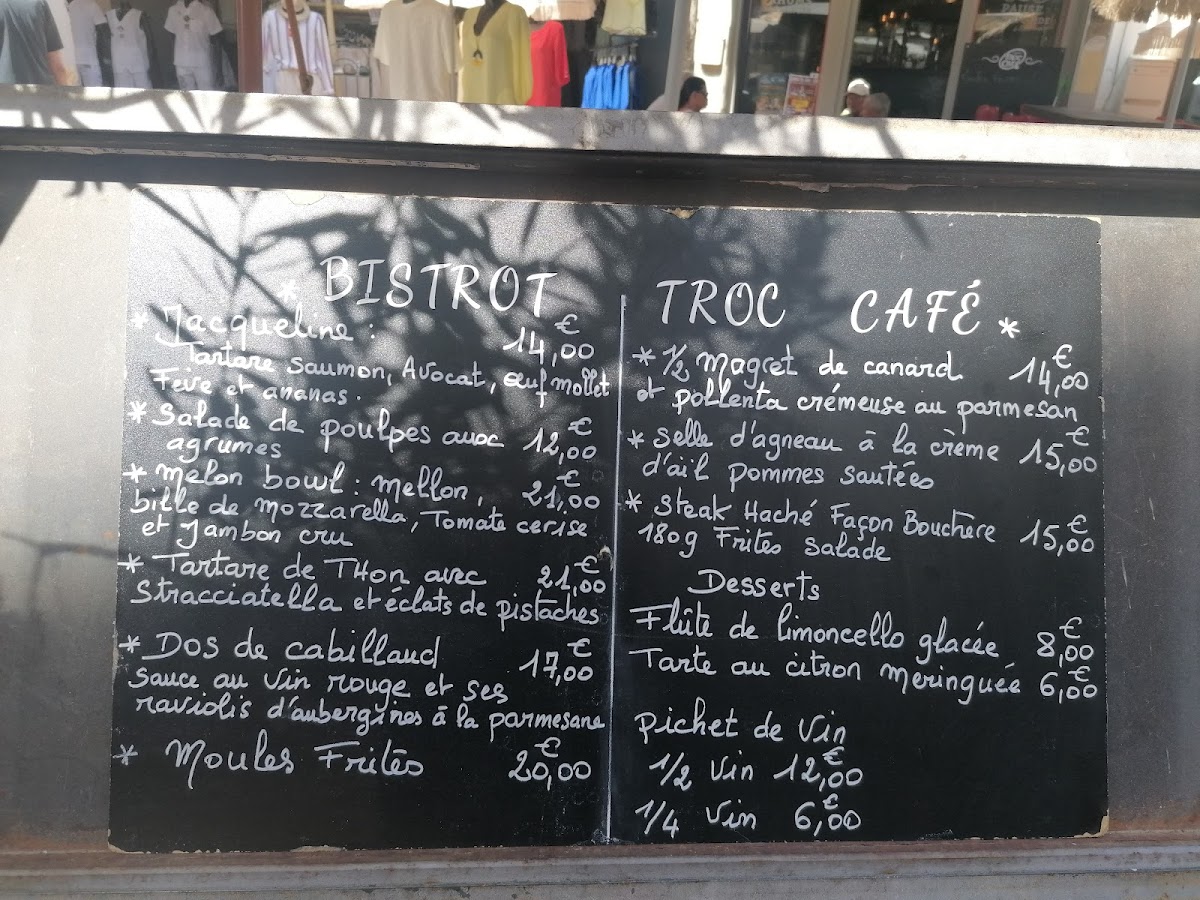 * BISTROT TROC CAFÉ *
* Jacqueline : 14,00 €
Tartare Saumon, Avocat, œuf mollet
Feve et ananas.
* Salade de poulpes avec 12,00 €
agrumes
* Melon bowl : mellon, 21,00 €
bille de mozzarella, Tomate cerise
et Jambon cru
* Tartare de THon avec 21,00 €
Stracciatella et éclats de pistaches
* Dos de cabillaud 17,00 €
sauce au vin rouge et ses
raviolis d'aubergines à la parmesane
* Moules Frites 20,00 €
* 1/2 magret de canard 14,00 €
et pollenta crémeuse au parmesan
* Selle d'agneau à la crème 15,00 €
d'aïl pommes sautées
* Steak Haché Façon Bouchere 15,00 €
180g Frites Salade
Desserts
Flûte de limoncello glacée 8,00 €
Tarte au citron meringuée 6,00 €
Pichet de Vin
1/2 Vin 12,00 €
1/4 Vin 6,00 €